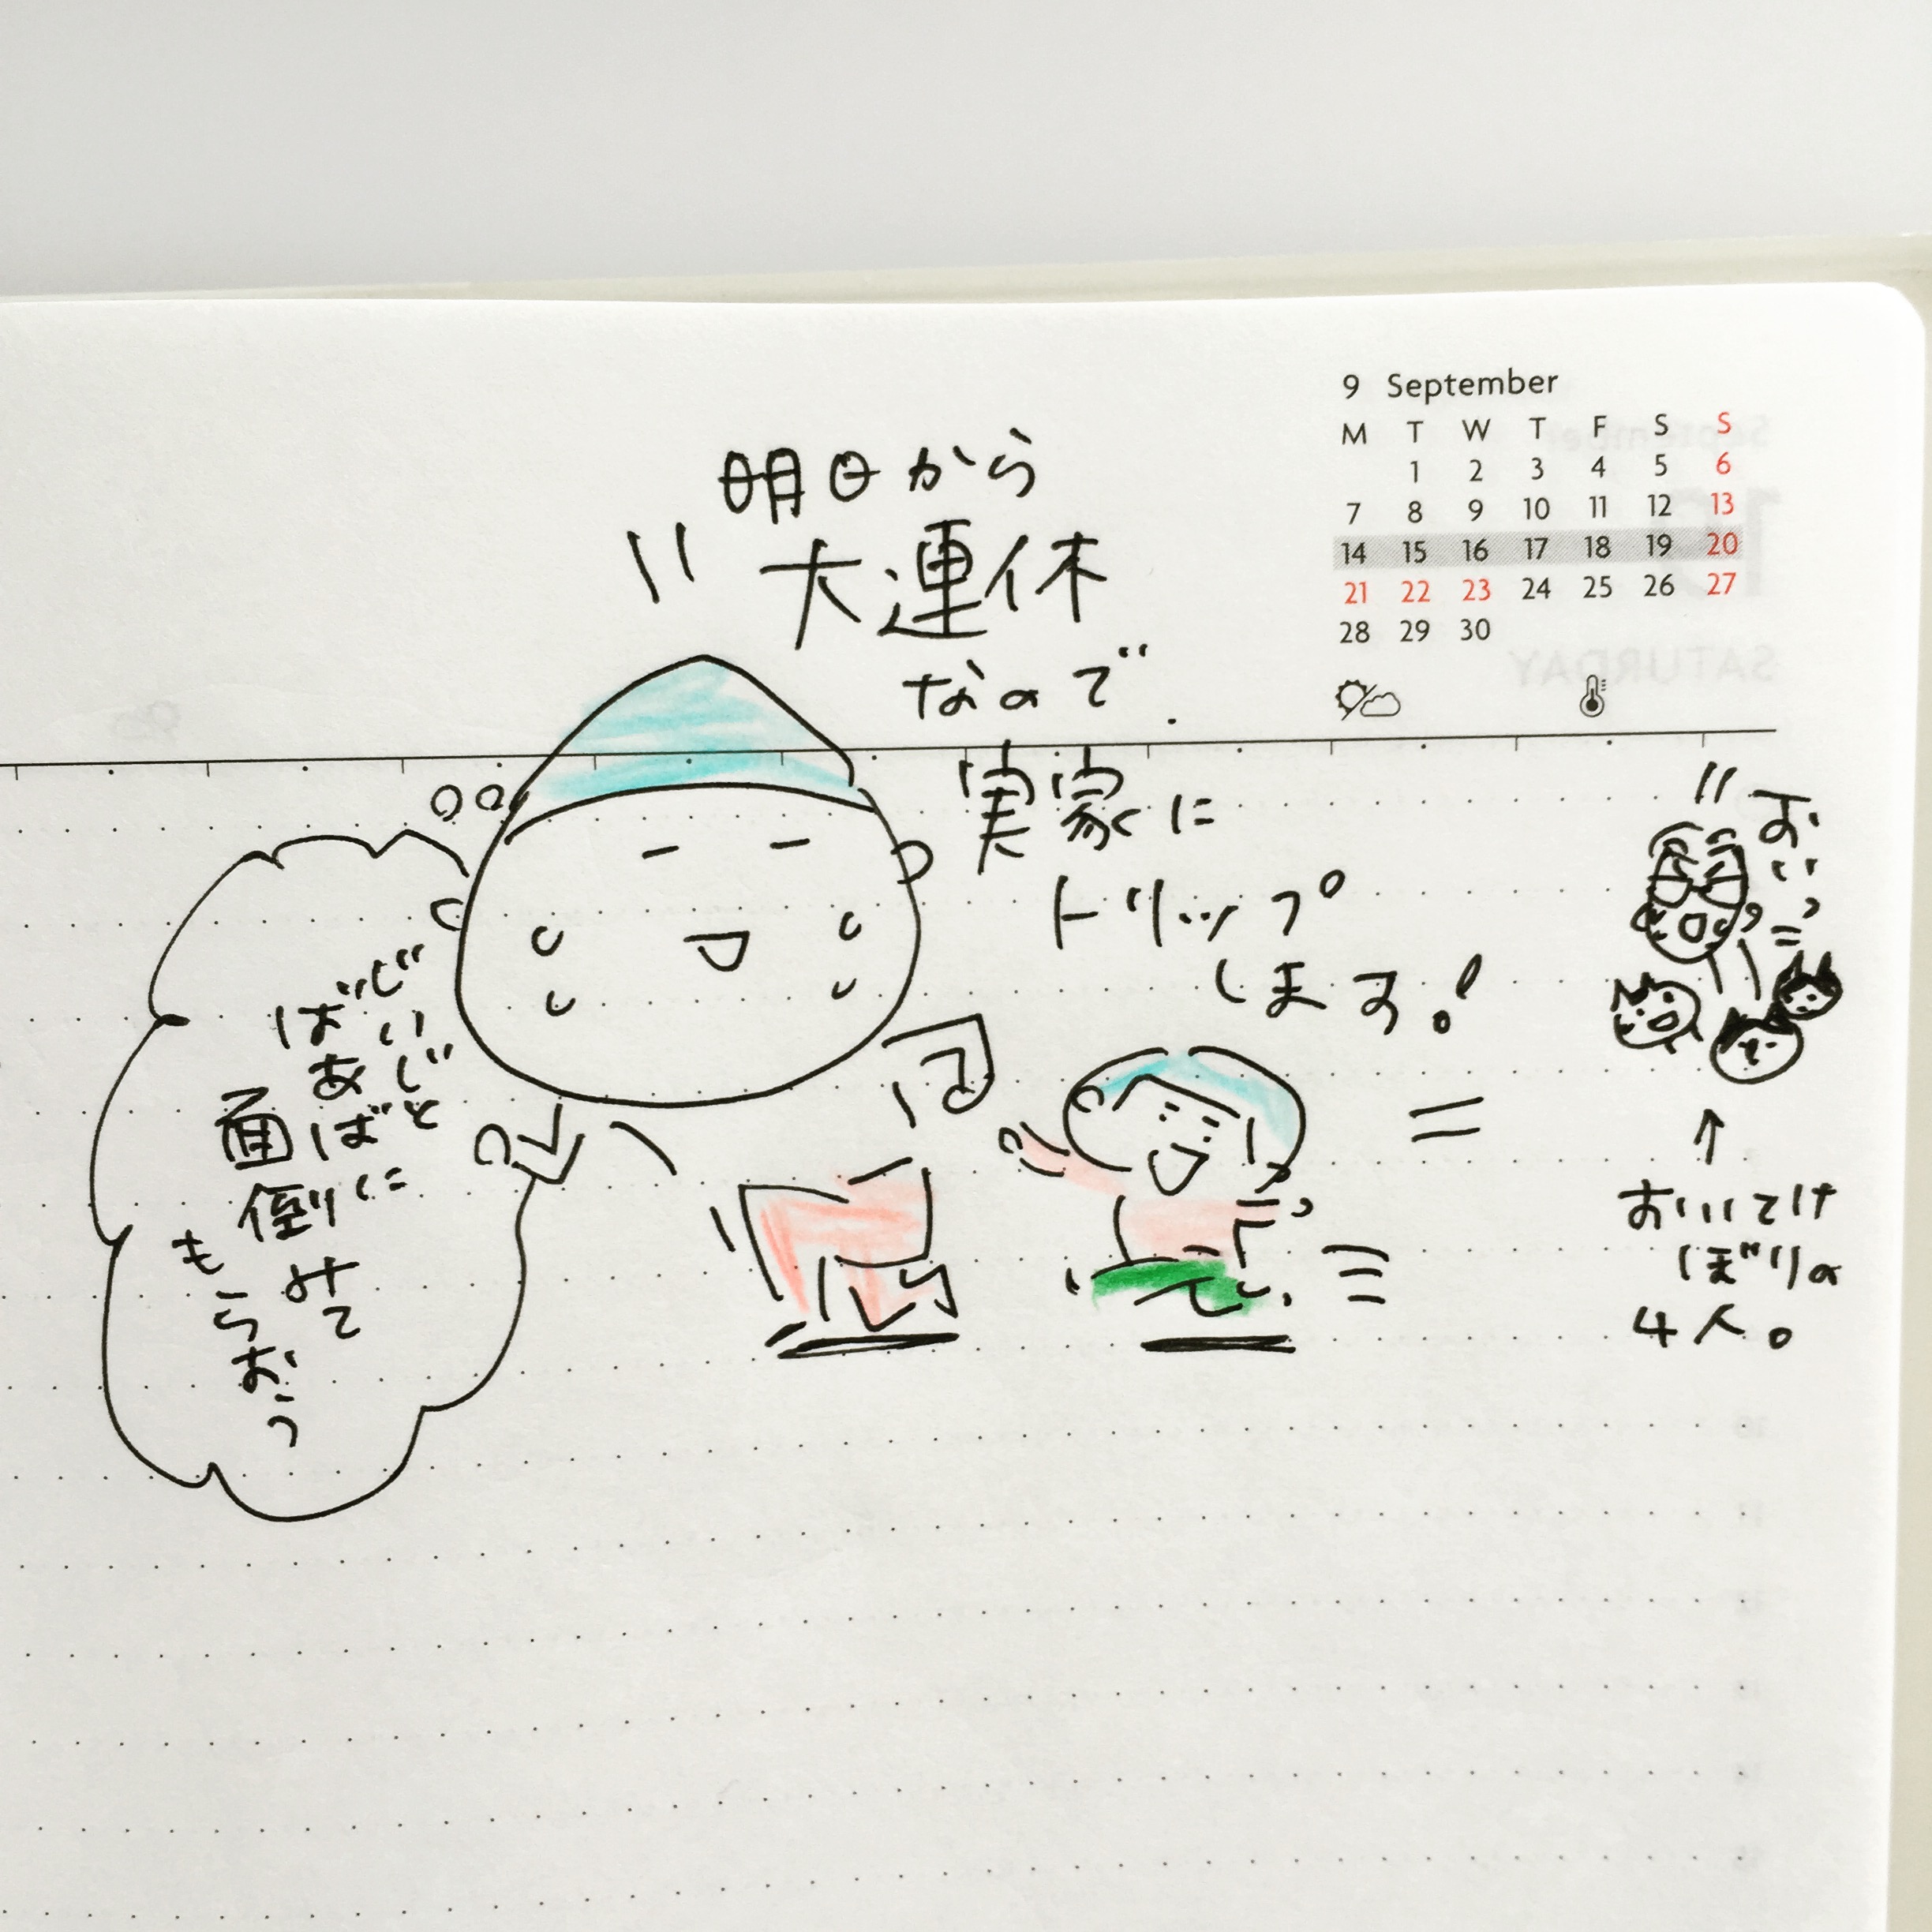 9 September
M T W T F S S
1 2 3 4 5 6
7 8 9 10 11 12 13
14 15 16 17 18 19 20
21 22 23 24 25 26 27
28 29 30
明日から
大連休
なので.
実家に
トリップ
します!
じいじと
ばあばに
面倒みて
もらおう
おいっ
↑
おいてけ
ぼりの
4人。
SATURDAY